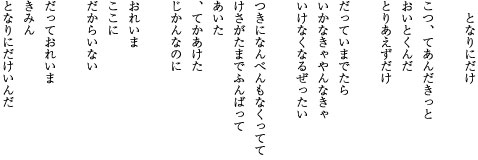 となりにだけ
こつ、てあんだきっと
おいとくんだ
とりあえずだけ
だっていまでたら
いかなきゃやんなきゃ
いけなくなるぜったい
つきになんべんもなくってて
けさがたまでふんばって
あいた
、てかあけた
じかんなのに
おれいま
ここに
だからいない
だっておれいま
きみん
となりにだけいんだ